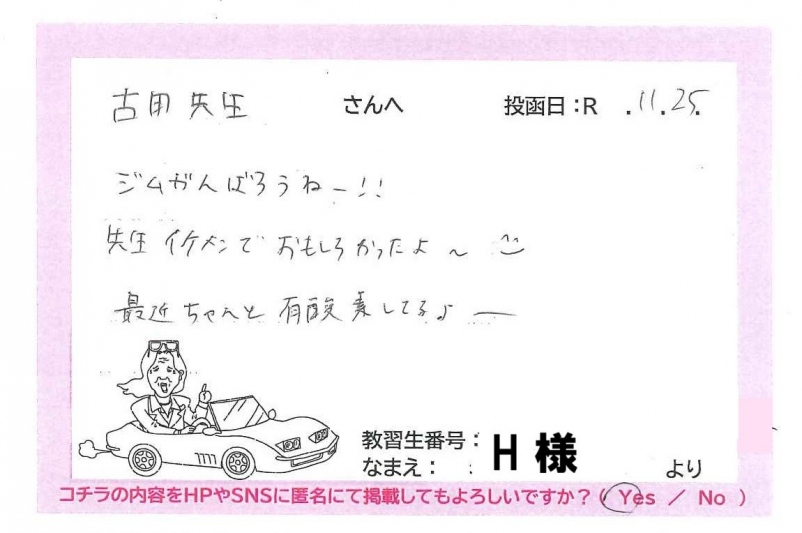 古田先生 さんへ 投函日：R .11.25.
ジムがんばろうねー!!
先生イケメンでおもしろかったよ～^^
最近ちゃんと有酸素してるよー
教習生番号：
なまえ： H 様 より
コチラの内容をHPやSNSに匿名にて掲載してもよろしいですか？( Yes ／ No )